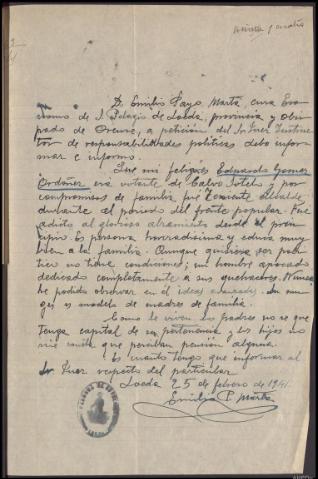 D. Emilio Payo Marta, cura Ecónomo de S. Pelagio de Loeda, provincia y Obispado de Orense, a petición del Sr Juez Instructor de responsabilidades políticas debo informar e informo.
Que mi feligrés Eduardo Gomez
Ordoñez era votante de Calvo Sotelo y por
compromisos de familia fué Teniente Alcalde
durante el periodo del frente popular. Fué
adicto al glorioso alzamiento desde el principio. Es persona honradísima y educa muy
bien a la familia. Aunque quisiera ser político no tiene condiciones; un hombre apocado
dedicado completamente a sus quehaceres. Nunca
he podido observar en él ideas avanzadas. Su mujer es modelo de madres de familia.
Como le viven los padres no se que
tenga capital de su pertenencia y los hijos no
me consta que perciban pensión alguna.
Es cuanto tengo que informar al
Sr Juez respecto del particular.
Loeda 25 de febrero de 1941.
Emilio P. Marta